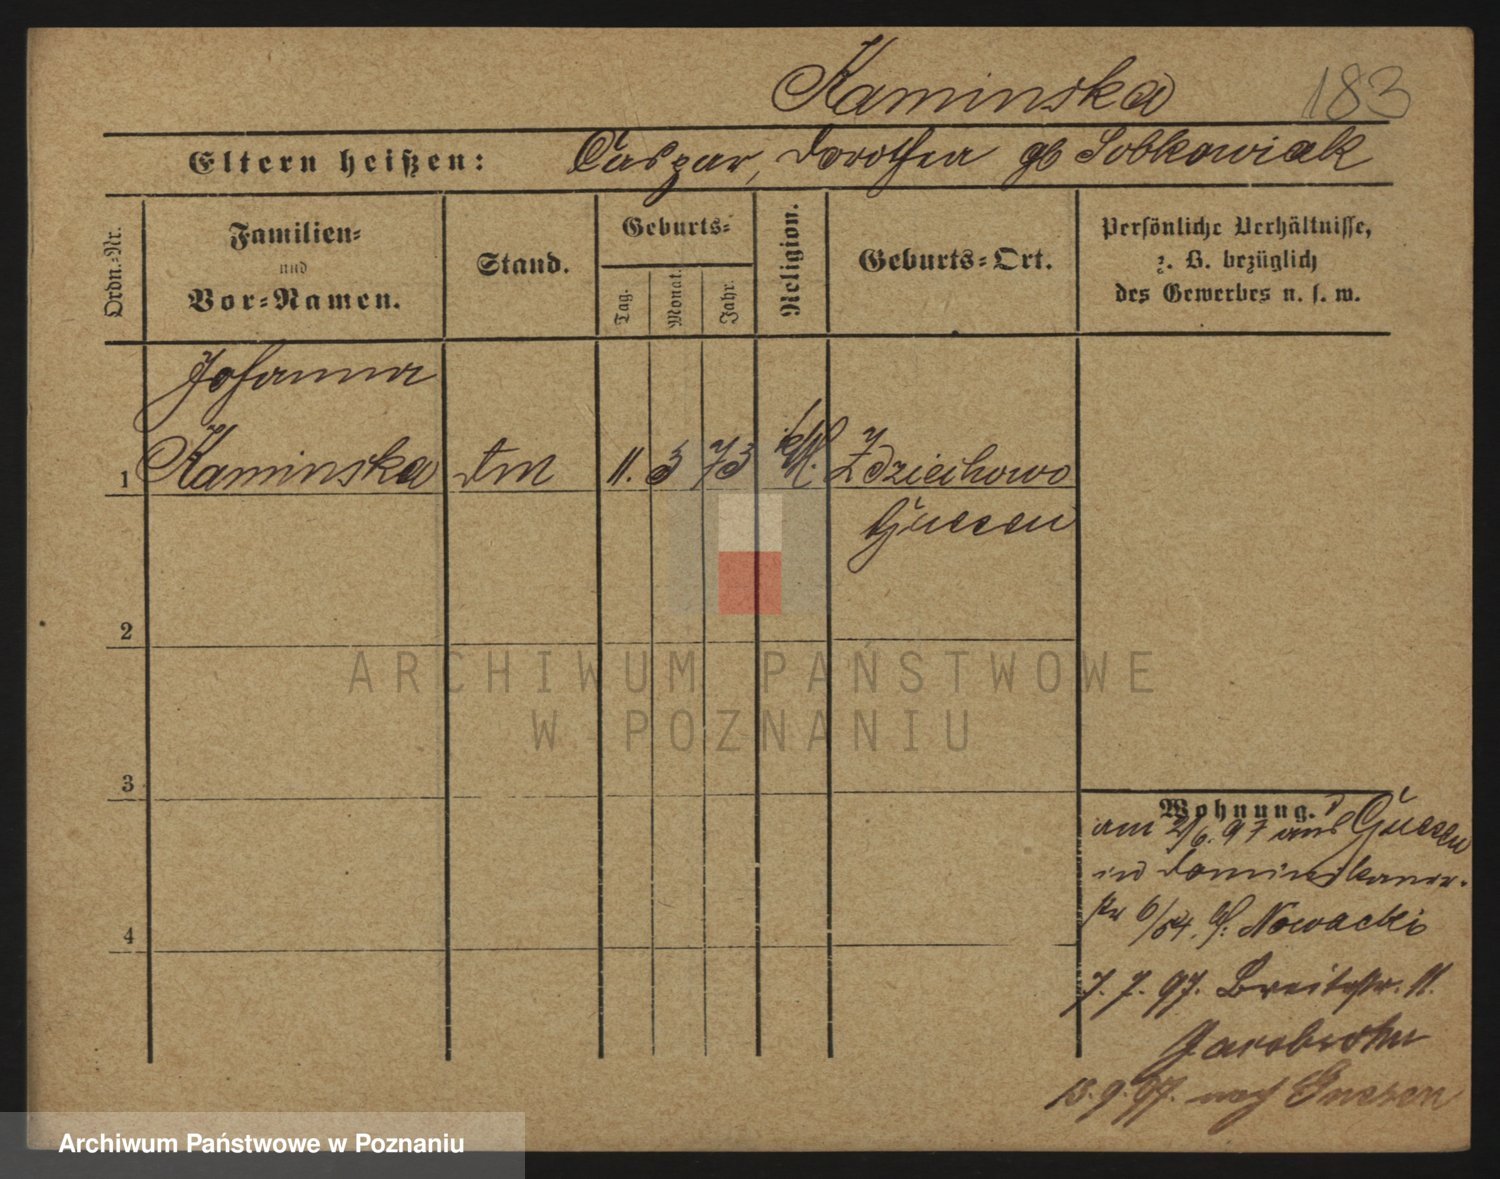 Kaminska 183
Eltern heißen: Caspar, Dorothea gb Sobkowiak
Ordn.=Nr.
Familien=
und
Vor=Namen.
Stand.
Geburts=
Tag.
Monat.
Jahr.
Religion.
Geburts=Ort.
Persönliche Verhältnisse,
z. B. bezüglich
des Gewerbes u. s. w.
Johanna
1 Kaminska 11. 3 73 Zdziechowo
Gnesen
2
ARCHIWUM PAŃSTWOWE
W POZNANIU
3
Wohnung.
am 2/6. 97 aus Gnesen
in Dominikaner-
str 6/ Nowacki
7. 7. 97. Breitestr. 11.
Jacobsohn
4
13. 9. 97. nach Gnesen
Archiwum Państwowe w Poznaniu